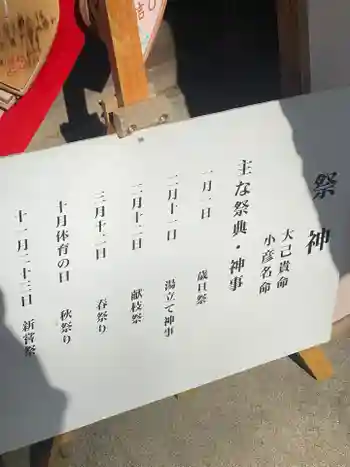 祭神
大己貴命
小彦名命
主な祭典・神事
一月一日 歳旦祭
二月十一日 湯立て神事
二月十二日 献枝祭
三月十二日 春祭り
十月体育の日 秋祭り
十一月二十三日 新嘗祭